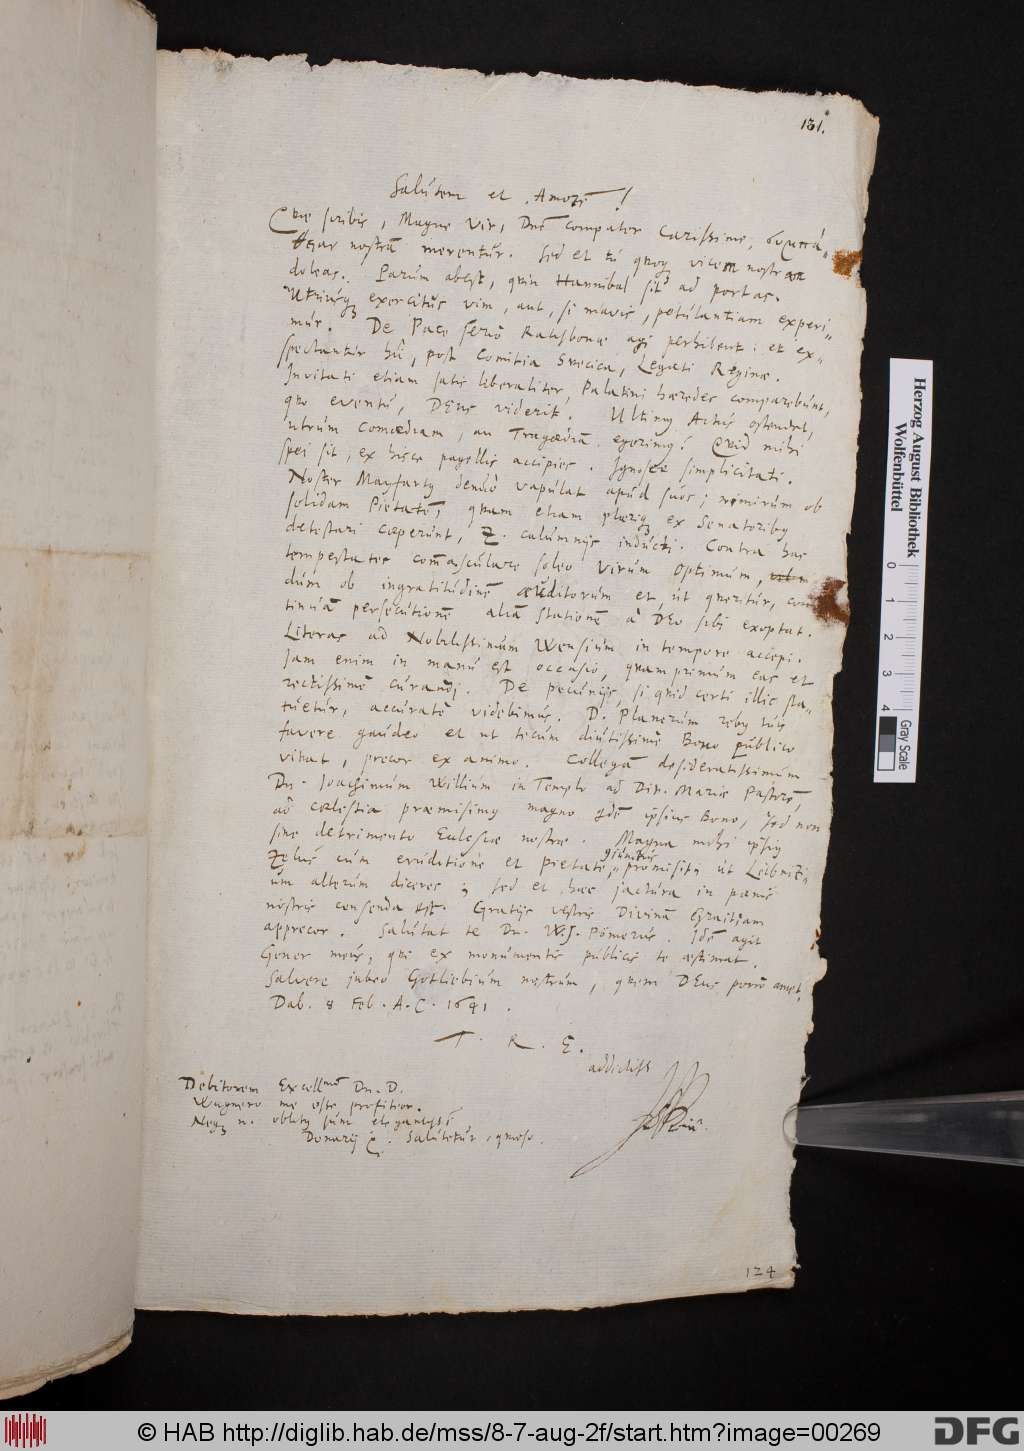 131.
Salutem et Amorē!
Quæ scribis, Magne Vir, Dn̄e Compater Carissime, συμπά-
θειαν nostrā merentur. Sed et tu quoq; vicem nostram
doleas. Parum abest, quin Hannibal sit ad portas.
Utriusq; exercitus vim, aut, si mavis, petulantiam experi-
mur. De Pace seriò Ratisbonæ agi perhibent: et ex-
spectantur hũc, post Comitia Svecica, Legati Reginæ.
Invitati etiam satis liberaliter, Palatini hæredes comparebunt,
quo eventu, DEus viderit. Ultimus Actus ostendet,
utrum Comœdiam, an Tragœdiā egerimus? Quid mihi
spei sit, ex hisce pagellis accipies. Ignosce simplicitati.
Noster Mayfartus denuò vapulat apud suos; nimirum ob
solidam Pietatē, quam etiam pleriq; ex Senatoribus
detestari cœperunt, calumnijs inducti. Contra has
tempestates com̄asculare soleo virum optimum,
dum ob ingratitudinē auditorum et, ut queritur, con-
tinuā persecutionē aliā stationē à DEo sibi exoptat.
Literas ad Nobilissimum Wensium in tempore accepi.
Jam enim in manu est occasio, quamprimum eas et
rectissimè curandi. De pecunijs, si quid certi illic sta-
tuetur, accuratè videbimus. D. Planerum rebus tuis
favere gaudeo et ut tecum diutissimè Bono publico
vivat, precor ex animo. Collegā desideratissimum
Dn. Joachimum Willium in Templo ad Div. Mariæ Pastorē,
ad cœlestia præmisimus magno qdē ipsius Bono, sed non
sine detrimento Ecclesiæ nostræ. Magna mihi ipsius
Zelus cum eruditione et pietate giunctus promisit, ut Leibnitzi-
um alterum diceres; sed et hæc jactura in pœnis
nostris censenda est. Gratijs vestris Divinā Gratiam
apprecor. Salutat te Dn. W. J. Pömerus. Idē agit
Gener meus, qui ex monumentis publicis te æstimat.
Salvere jubeo Gotliebium nostrum, quem DEus porrò amet.
Dab. 8 Feb. A. C. 1641.
T. R. E.
addictiss
Debitorem Excellmo Dn. D.
Wagnero me esse profiteor.
Neq; n. oblitus sum elegantissi
Donarij. Salutetur, quæso.
124
Herzog August Bibliothek
Wolfenbüttel
0 1 2 3 4
Gray Scale
© HAB http://diglib.hab.de/mss/8-7-aug-2f/start.htm?image=00269
DFG